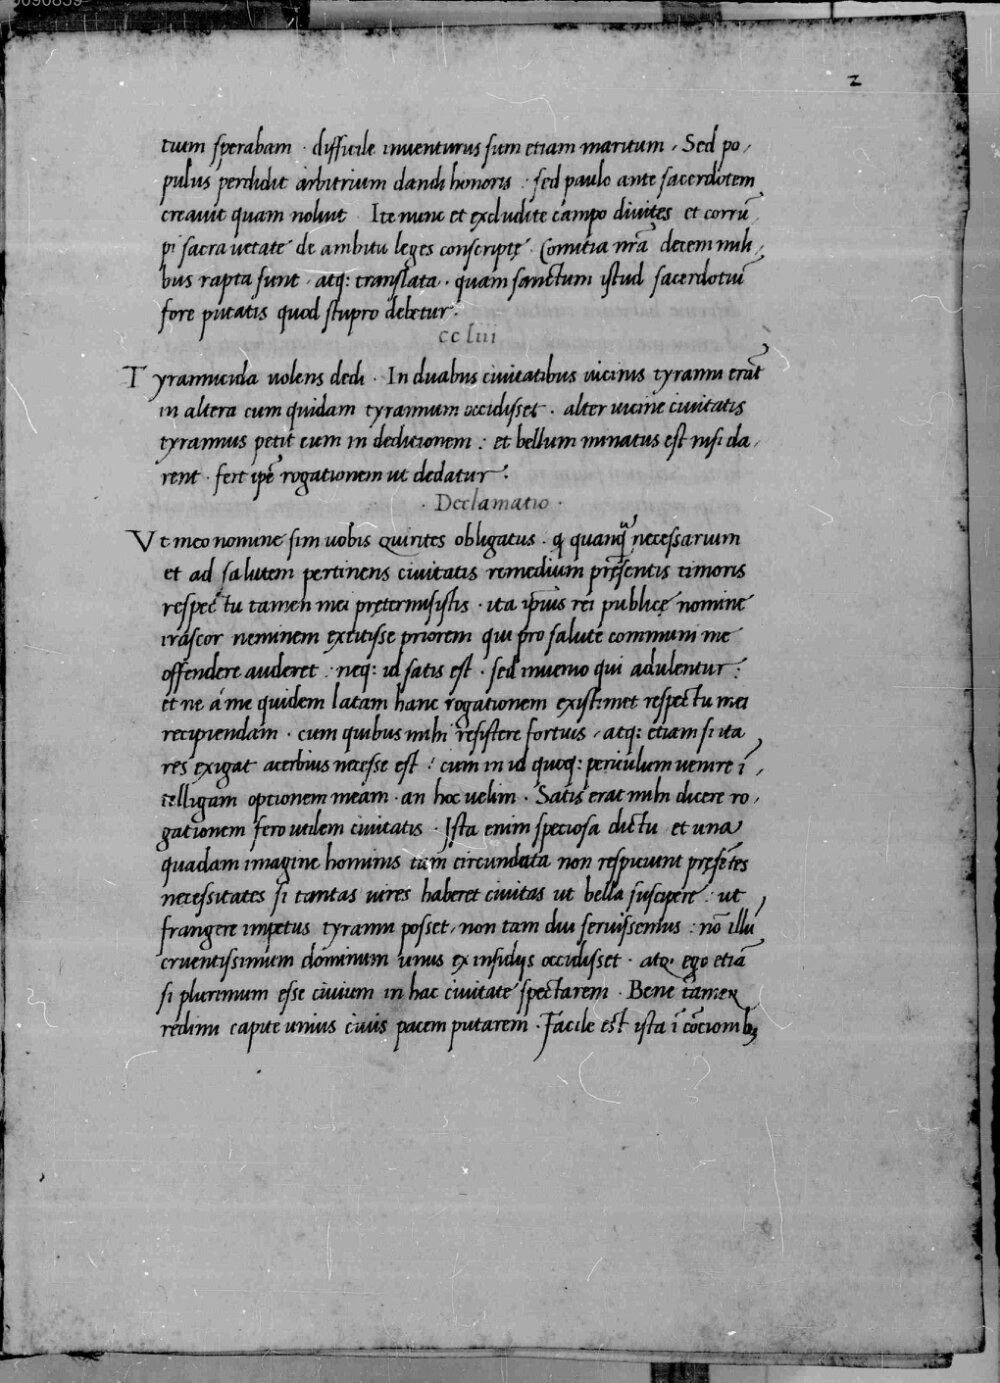 2
tium sperabam · difficile inuenturus sum etiam maritum, Sed po,
pulus perdidit arbitrium dandi honoris : sed paulo ante sacerdotem
creauit quam noluit Ite nunc et excludite campo diuites et corrū
pi sacra uetate de ambitu leges conscriptę. Comitia nrā decem mili,
bus rapta sunt, atq: translata · quam sanctum istud sacerdotiū
fore putatis quod stupro debetur.
ccliii
Tyrannicida uolens dedi · In duabus ciuitatibus uicinis tyranni erāt
in altera cum quidam tyrannum occidisset · alter uicine ciuitatis
tyrannus petit eum in deditionem : et bellum minatus est nisi da,
rent · fert ipē rogationem ut dedatur.
· Declamatio ·
Vt meo nomine sim uobis quirites obligatus · ꝙ quanq̄ necessarium
et ad salutem pertinens ciuitatis remedium pręsentis timoris
respectu tamen mei prętermisistis · ita ipsius rei publicę nomine
irascor neminem extitisse priorem qui pro salute communi me
offendere auderet : neq: id satis est · sed inuenio qui adulentur :
et ne á me quidem latam hanc rogationem existimet respectu mei
recipiendam · cum quibus mihi resistere fortius, atq: etiam si ita
res exigat acerbius necesse est : cum in id quoq: periculum uenire ī,
telligam optionem meam · an hoc uelim · Satis erat mihi dicere ro,
gationem fero utilem ciuitatis · Ista enim speciosa dictu et una
quadam imagine hominis tām circundata non respiciunt pręsētes
necessitates si tantas uires haberet ciuitas ut bella suscipere : ut
frangere impetus tyranni posset, non tam diu seruissemus : nō illū
cruentissimum dominum unus ex insidijs occidisset · atq: ego etiā
si plurimum esse ciuium in hac ciuitate spectarem · Bene tamen
redimi capite unius ciuis pacem putarem · Facile est ista ī cōcionibꝫ